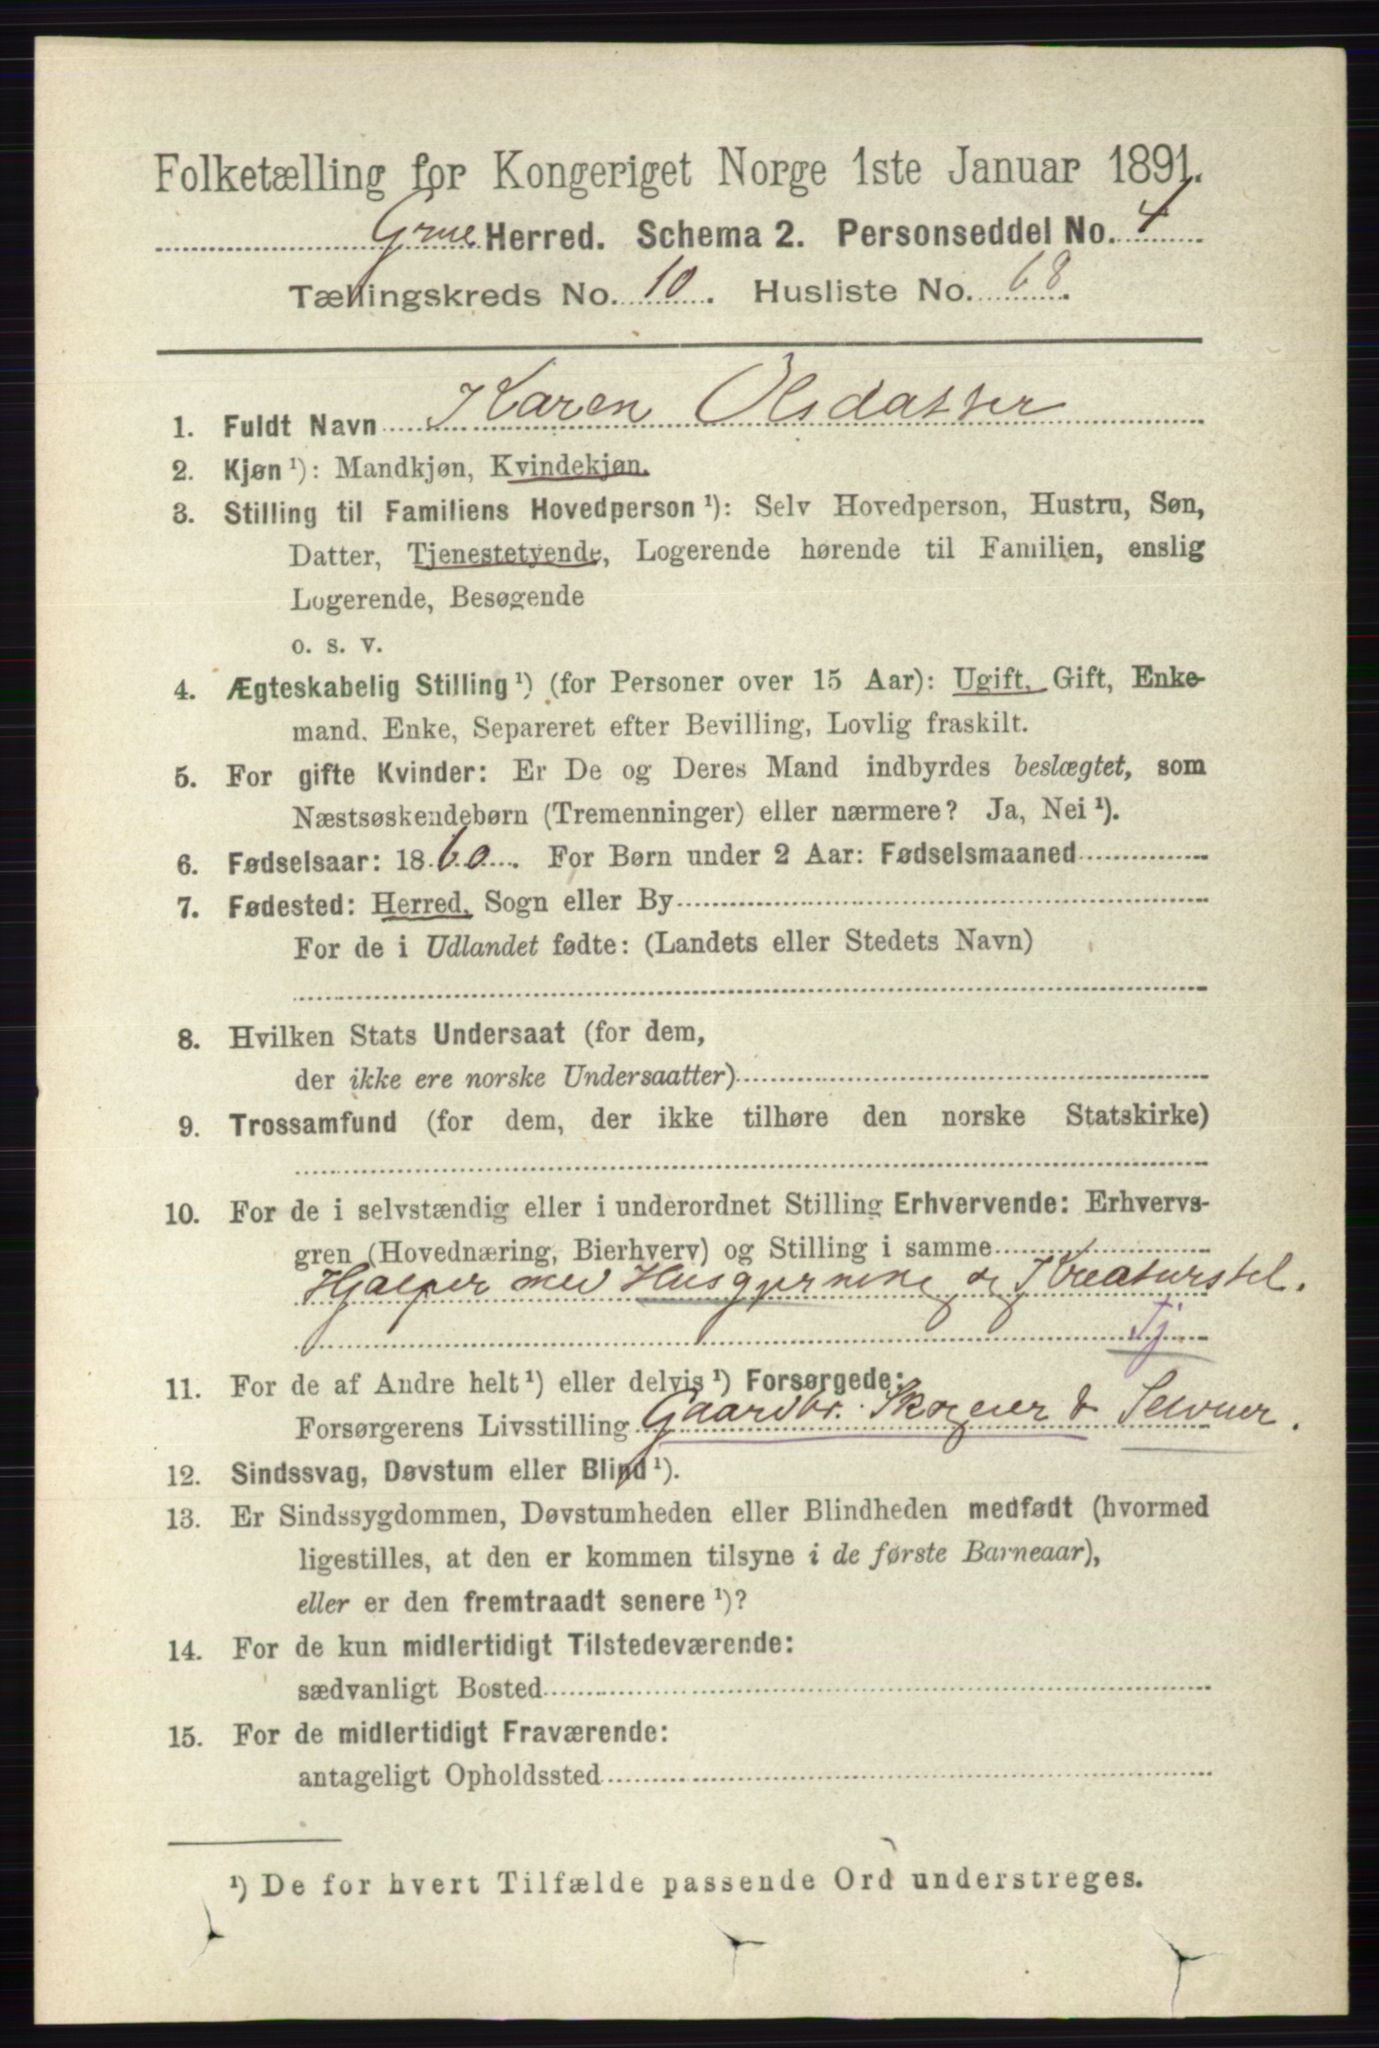 Folketælling for Kongeriget Norge 1ste Januar 1891.
Grue Herred. Schema 2. Personseddel No. 4
Tællingskreds No. 10. Husliste No. 68.
1. Fuldt Navn Karen Olsdatter
2. Kjøn ¹): Mandkjøn, Kvindekjøn.
3. Stilling til Familiens Hovedperson ¹): Selv Hovedperson, Hustru, Søn,
Datter, Tjenestetyende, Logerende hørende til Familien, enslig
Logerende, Besøgende
o. s. v.
4. Ægteskabelig Stilling ¹) (for Personer over 15 Aar): Ugift, Gift, Enke-
mand, Enke, Separeret efter Bevilling, Lovlig fraskilt.
5. For gifte Kvinder: Er De og Deres Mand indbyrdes beslægtet, som
Næstsøskendebørn (Tremenninger) eller nærmere? Ja, Nei ¹).
6. Fødselsaar: 1860. For Børn under 2 Aar: Fødselsmaaned
7. Fødested: Herred, Sogn eller By
For de i Udlandet fødte: (Landets eller Stedets Navn)
8. Hvilken Stats Undersaat (for dem,
der ikke ere norske Undersaatter)
9. Trossamfund (for dem, der ikke tilhøre den norske Statskirke)
10. For de i selvstændig eller i underordnet Stilling Erhvervende: Erhvervs-
gren (Hovednæring, Bierhverv) og Stilling i samme
Hjælper med Husgjerning og Kreaturstel.
Tj.
11. For de af Andre helt ¹) eller delvis ¹) Forsørgede:
Forsørgerens Livsstilling Gaardbr. Skogeier & Selveier.
12. Sindssvag, Døvstum eller Blind ¹).
13. Er Sindssygdommen, Døvstumheden eller Blindheden medfødt (hvormed
ligestilles, at den er kommen tilsyne i de første Barneaar),
eller er den fremtraadt senere ¹)?
14. For de kun midlertidigt Tilstedeværende:
sædvanligt Bosted
15. For de midlertidigt Fraværende:
antageligt Opholdssted
¹) De for hvert Tilfælde passende Ord understreges.